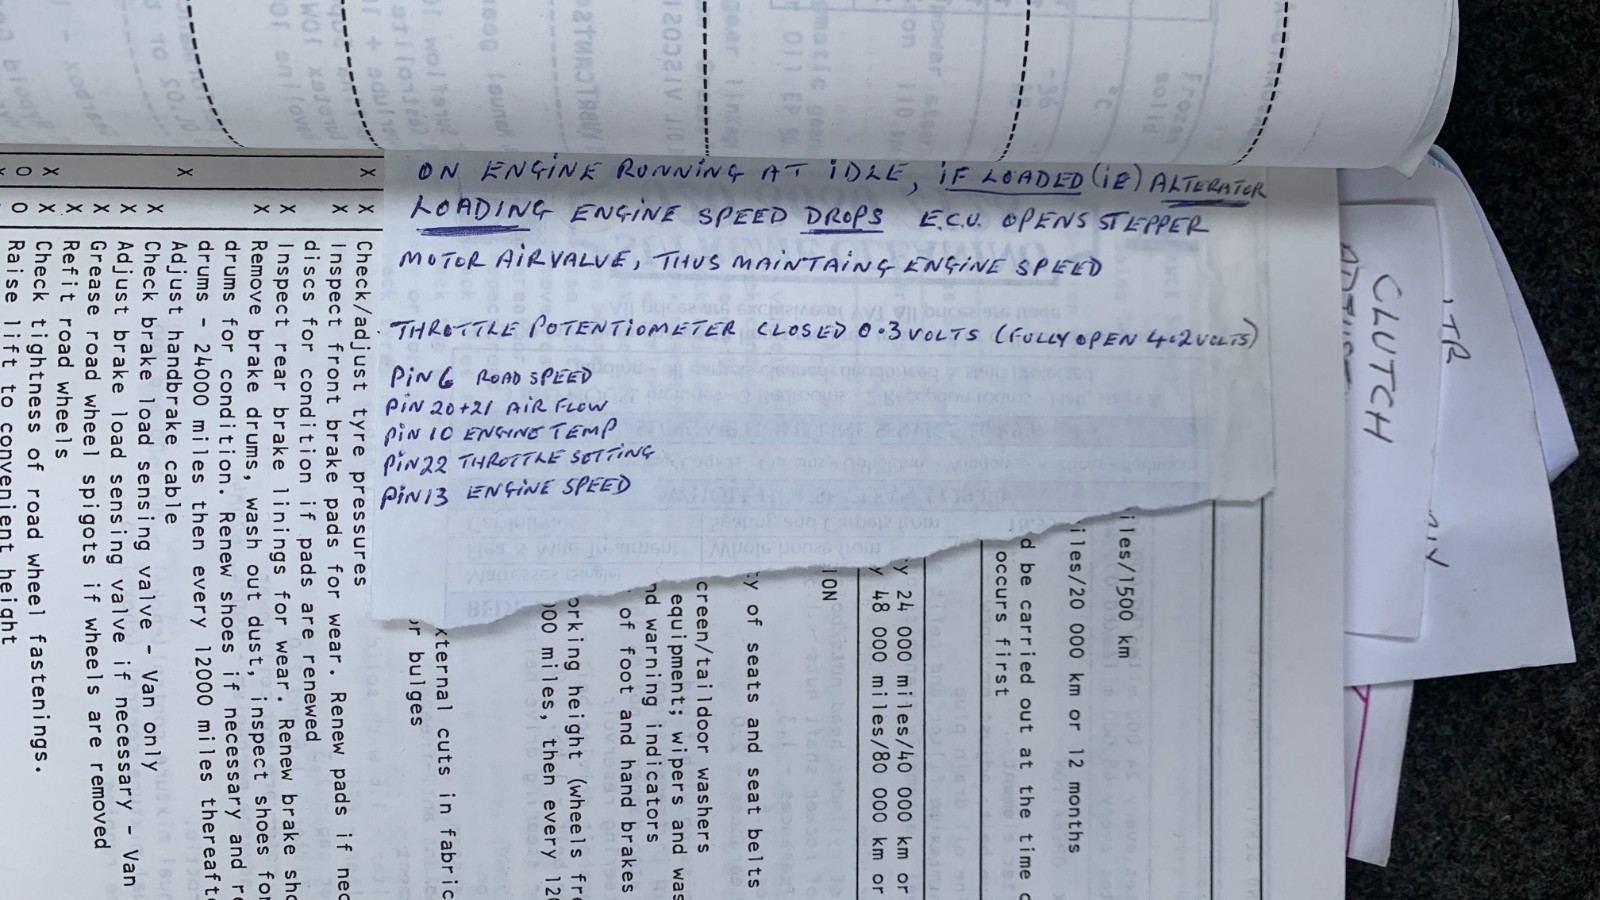 ON ENGINE RUNNING AT IDLE, IF LOADED (IE) ALTERATOR
LOADING ENGINE SPEED DROPS E.C.U. OPENS STEPPER
MOTOR AIRVALVE, THUS MAINTAING ENGINE SPEED
THROTTLE POTENTIOMETER CLOSED 0.3 VOLTS (FULLY OPEN 4.2 VOLTS)
PIN 6 ROAD SPEED
PIN 20+21 AIR FLOW
PIN 10 ENGINE TEMP
PIN 22 THROTTLE SETTING
PIN 13 ENGINE SPEED
iles/1500 km
iles/20 000 km or 12 months
d be carried out at the time
occurs first
y 24 000 miles/40 000 km or
y 48 000 miles/80 000 km or
ION
ty of seats and seat belts
creen/taildoor washers
equipment; wipers and was
nd warning indicators
of foot and hand brakes
orking height (wheels fre
00 miles, then every 120
xternal cuts in fabric
or bulges
X X Check/adjust tyre pressures
X Inspect front brake pads for wear. Renew pads if nec
discs for condition if pads are renewed
X Inspect rear brake linings for wear. Renew brake sho
X Remove brake drums, wash out dust, inspect shoes for
drums for condition. Renew shoes if necessary and re
drums - 24000 miles then every 12000 miles thereaft
X Adjust handbrake cable
X Check brake load sensing valve - Van only
X Adjust brake load sensing valve if necessary - Van
X Grease road wheel spigots if wheels are removed
X Refit road wheels
X X Check tightness of road wheel fastenings.
O O Raise lift to convenient height
CLUTCH
TR